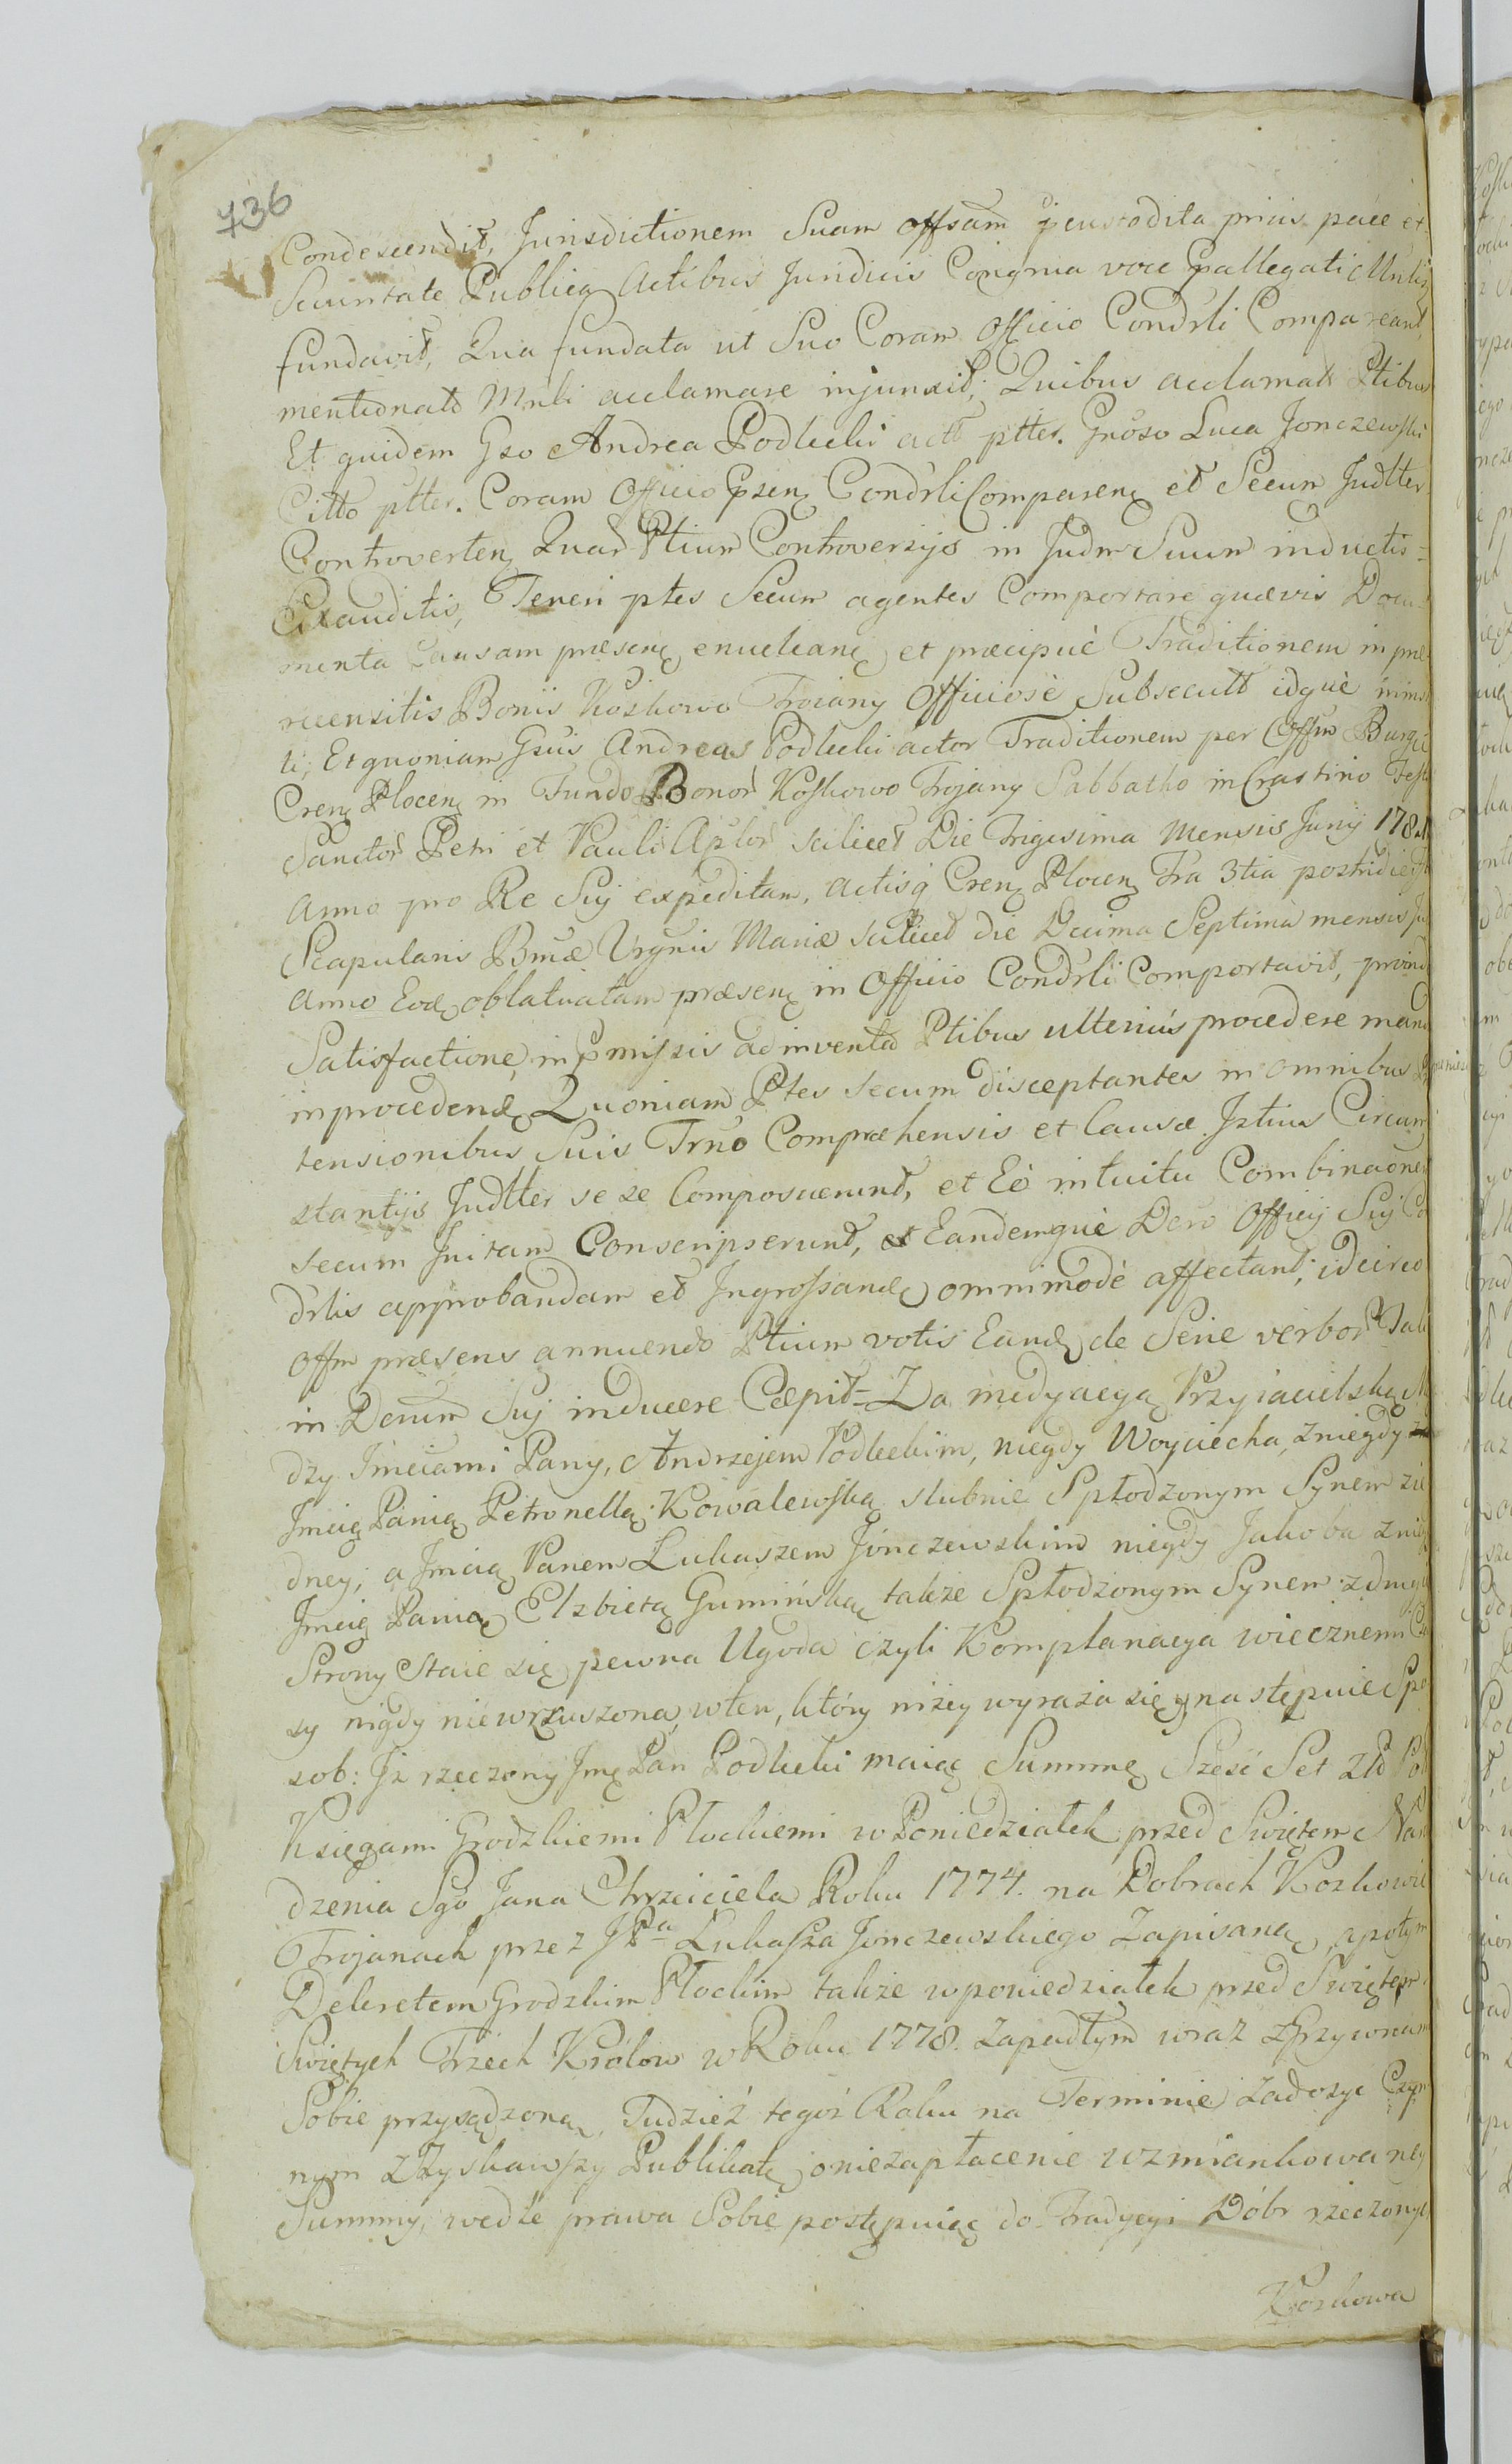 736
Condescendit, Jurisdictionem Suam Offsam pcustodita prius pace et
Securitate Publica Actibus Juridicis Congrua voce Pallegati Mnlis
fundavit, Qua fundata ut Suo Coram Officio Condrli Compareant,
mentionato Mnli acclamare injunxit; Quibus acclamatt Ptibus
Et quidem Gso Andrea Podlecki actt ptter. Gnoso Luca Jonczewski
Citto ptter. Coram Officio Psenҙ Condrli Comparenҙ et Secum Judtter
Controvertenҙ Quar Ptium Controversijs in Judm Suum inductis
Exauditis, Teneri ptes Secum agentes Comportare quævis Docu-
menta Causam præsenҙ enucleanҙ et præcipuè Traditionem in præ
recensitis Bonis Koskowo Troiany Officiosè Subsecutt idquè
ti; Et quoniam Gsus Andreas Podlecki actor Traditionem per Offm Burgi
Crenҙ Plocenҙ in Fundo Bonor Koskowo Trojany Sabbatho in Crastino Festi
Sanctor Petri et Pauli Aplor scilicet Die Trigesima Mensis Junij 178
Anno pro Re Sij expeditam, actisq Crenҙ Plocenҙ Fra 3tia postridie
Scapularis Bmæ Vrgnis Mariæ scilicet die Decima Septima mensis
Anno Eodҙ oblatuatam præsenҙ in Officio Condrli Comportavit, proinde
Satisfactione, in Pmissis adinventa Ptibus ulterius procedere mand
in procedendҙ Quoniam Ptes secum disceptantes in omnibus
tensionibus Suis Trno Compræhensis et Causæ Istius Circum
stantijs Judtter se se Composuerunt, et Eò intuitu Combinaonem
secum Initam Conscripserunt, et Eandemquè Dero Officij Sij Co
drlis approbandam et Ingrossandҙ omnimodè affectant; idcirco
Offm præsens annuendo Ptium votis Eandҙ de Serie verbor Tali
in Derum Sij inducere Cæpit = Za medyacyą Przyiacielską
dzy Jmciami Pany, Andrzejem Podleckim, niegdy Woyciecha, zniegdy
Jmcią Panią Petronellą Kowalewską slubnie Spłodzonym Synem zie
dney; a Jmcią Panem Łukaszem Jonczewskim niegdy Jakoba znieg
Jmcią Panią Elzbietą Gumińską także Spłodzonym Synem zdrugi
Strony Staie się pewna Ugoda czyli Komplanacya wiecznemi
sy nigdy niewzruszona, w ten, który niżey wyraża się y następuie Spo
sob: Iz rzeczony Jmć Pan Podlecki maiąc Summę Szesć Set Złt Pol
Księgami Grodzkiemi Płockiemi w Poniedziałek przed Swiętem Naro
dzenia Sgo Jana Chrzciciela Roku 1774. na Dobrach Kozkowie
Trojanach przez JPa Łukasza Jonczewskiego Zapisaną, a potym
Dekretem Grodzkim Płockim także w poniedziałek przed Swiętem
Swiętych Trzech Królow w Roku 1778. Zapadłym wraz zPrzywnam
Sobie przysądzoną, Tudzież tegoż Roku na Terminie zadosyc Czyn
nym Zyskawszy Publikatę, o niezapłacenie wzmiankowaney
Summy, wedle prawa Sobie postępuiąc do Tradycyi Dóbr rzeczonych
Kozkowa